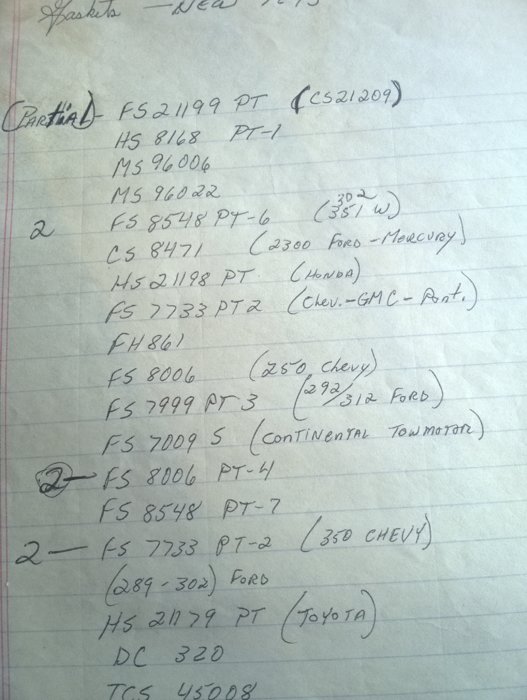 Gaskets — New
(Partial) - FS 21199 PT (CS21209)
HS 8168 PT-1
MS 96006
MS 96022
302
2 FS 8548 PT-6 (351 W)
CS 8471 (2300 Ford - Mercury)
HS 21198 PT (Honda)
FS 7733 PT 2 (Chev. - GMC - Pont.)
FH 861
FS 8006 (250 Chevy)
FS 7999 PT 3 (292/312 Ford)
FS 7009 S (Continental Towmotor)
2 — FS 8006 PT-4
FS 8548 PT-7
2 — FS 7733 PT-2 (350 CHEVY)
(289 - 302) Ford
HS 21179 PT (TOYOTA)
DC 320
TCS 45008